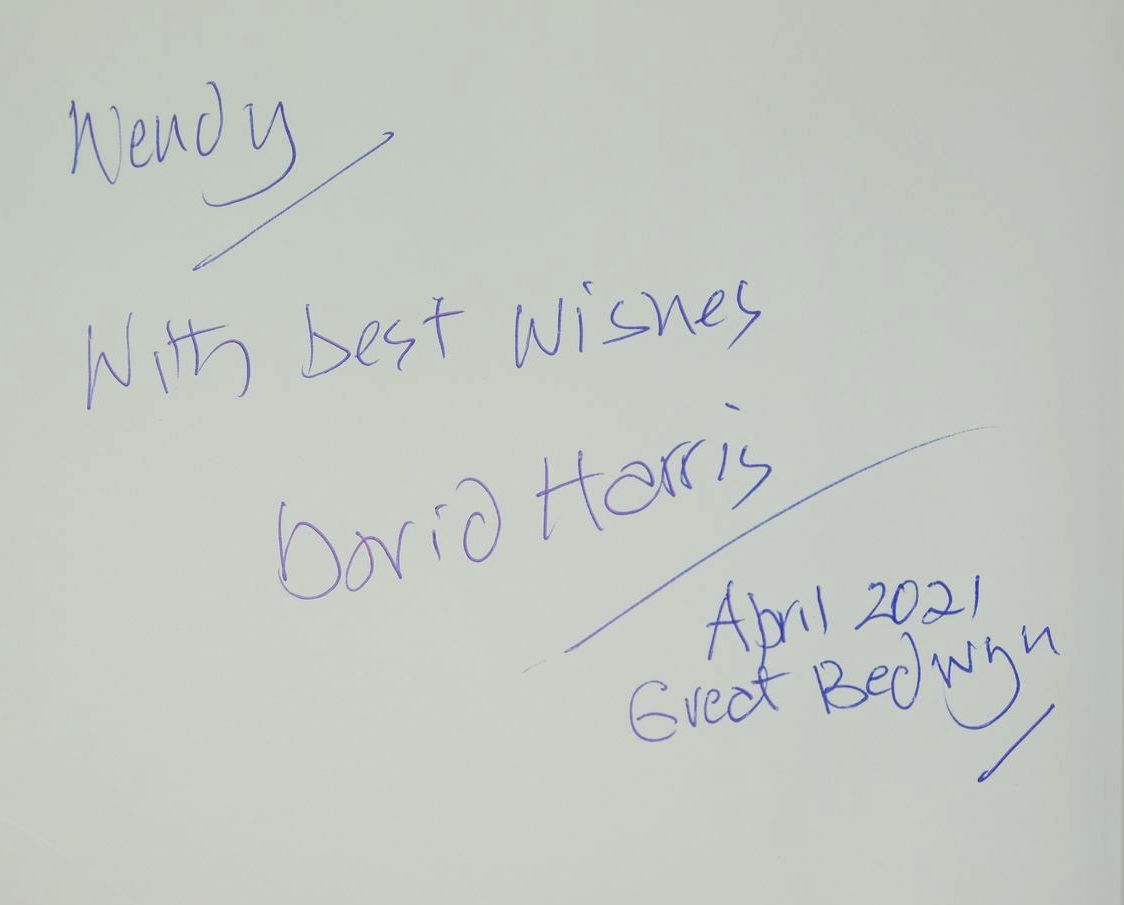 Wendy
With best wishes
David Harris
April 2021
Great Bedwyn